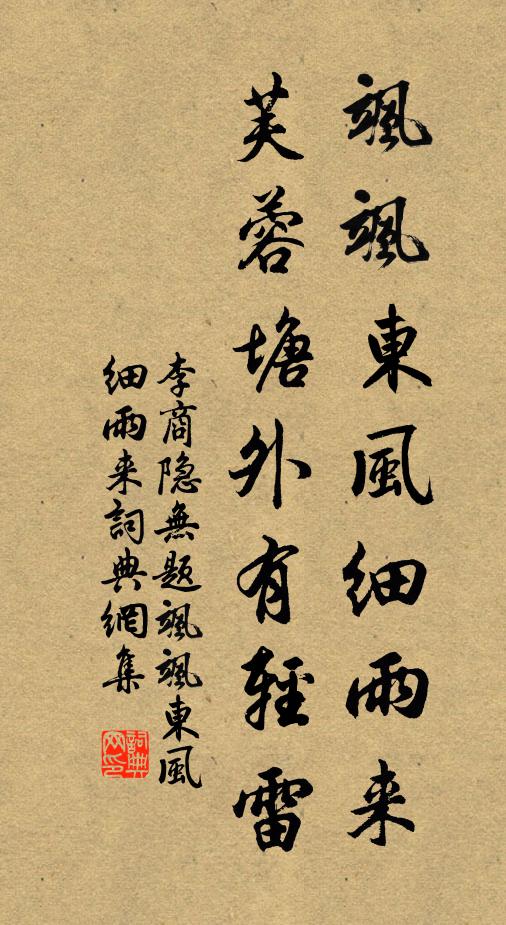 颯颯東風細雨来
芙蓉塘外有輕雷
李商隐無题颯颯東風
细雨来詞典網集
詞典
网印